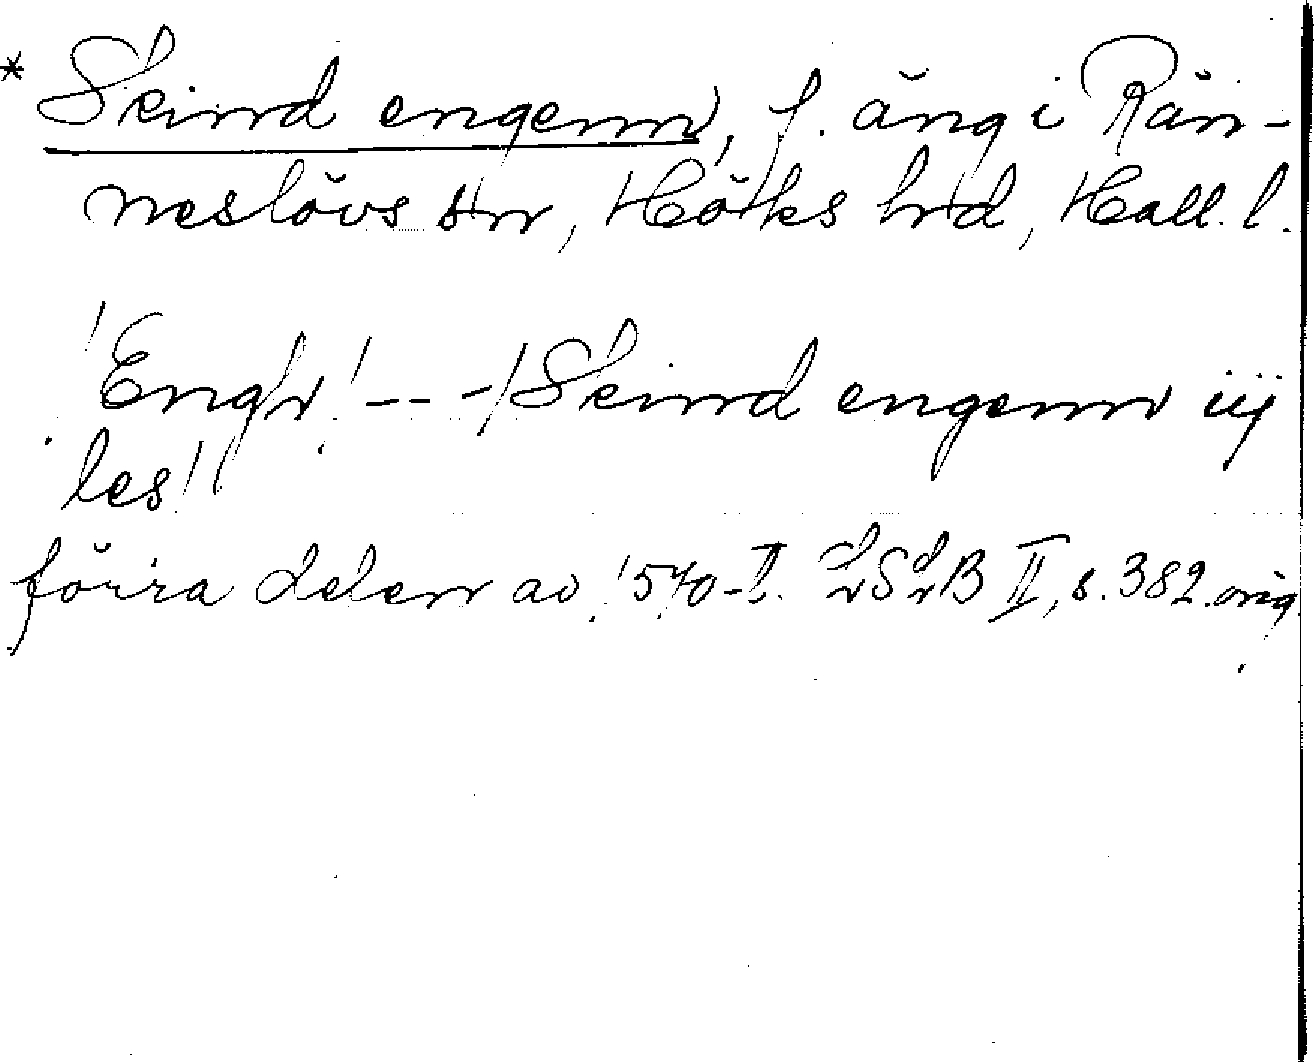 * Skind engenn, f. äng i Rän-
neslövs sn, Höks hd, Hall. l.
'Engh' --- / Skind engenn iij
les'
förra delen av 1570-t. LSLB II, s. 382. orig